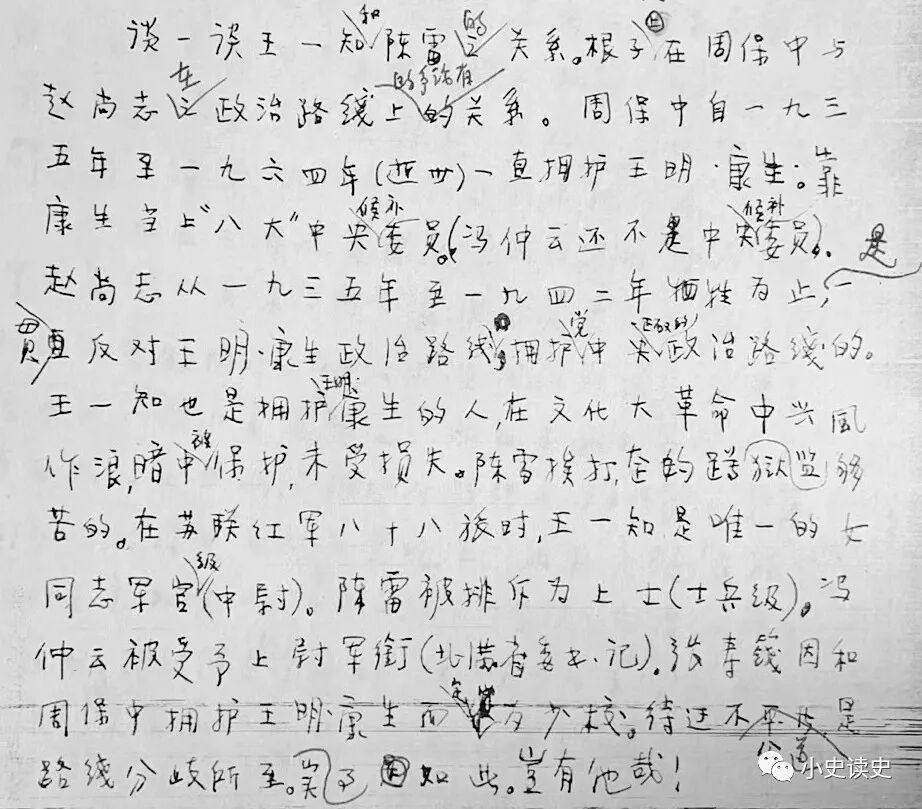 谈一谈王一知和陈雷的关系。根子在周保中与
赵尚志在政治路线上的争论有的关系。周保中自一九三
五年至一九六四年(逝世)一直拥护王明·康生:靠
康生当上"八大"中央候补委员。(冯仲云还不是中央候补委员)。
赵尚志从一九三五年至一九四二年牺牲为止,是一
贯反对王明·康生政治路线,拥护党中央正确的政治路线的。
王一知也是拥护王明·康生的人,在文化大革命中兴風
作浪,暗中被保护,未受损失。陈雷挨打,的蹲监狱够
苦的。在苏联红军八十八旅时,王一知是唯一的女
同志军官级(中尉)。陈雷被排斥为上士(士兵级)。冯
仲云被受予上尉军銜(北满省委书记)。张寿籛因和
周保中拥护王明·康生而为少校。待迂不公道是
路线分歧所至。因如此。豈有他哉!
小史读史